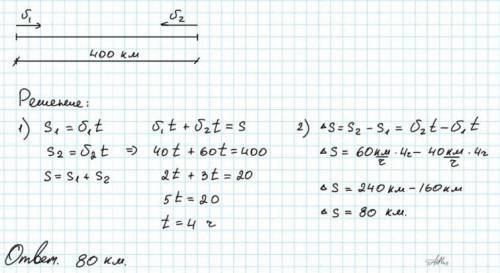 υ₁ υ₂
400 км
Решение:
1) S₁ = υ₁t
S₂ = υ₂t ⇒
S = S₁ + S₂
υ₁t + υ₂t = S
40t + 60t = 400
2t + 3t = 20
5t = 20
t = 4 ч
2) ΔS = S₂ − S₁ = υ₂t − υ₁t
ΔS = 60 км/ч · 4ч − 40 км/ч · 4ч
ΔS = 240 км − 160 км
ΔS = 80 км.
Ответ. 80 км.